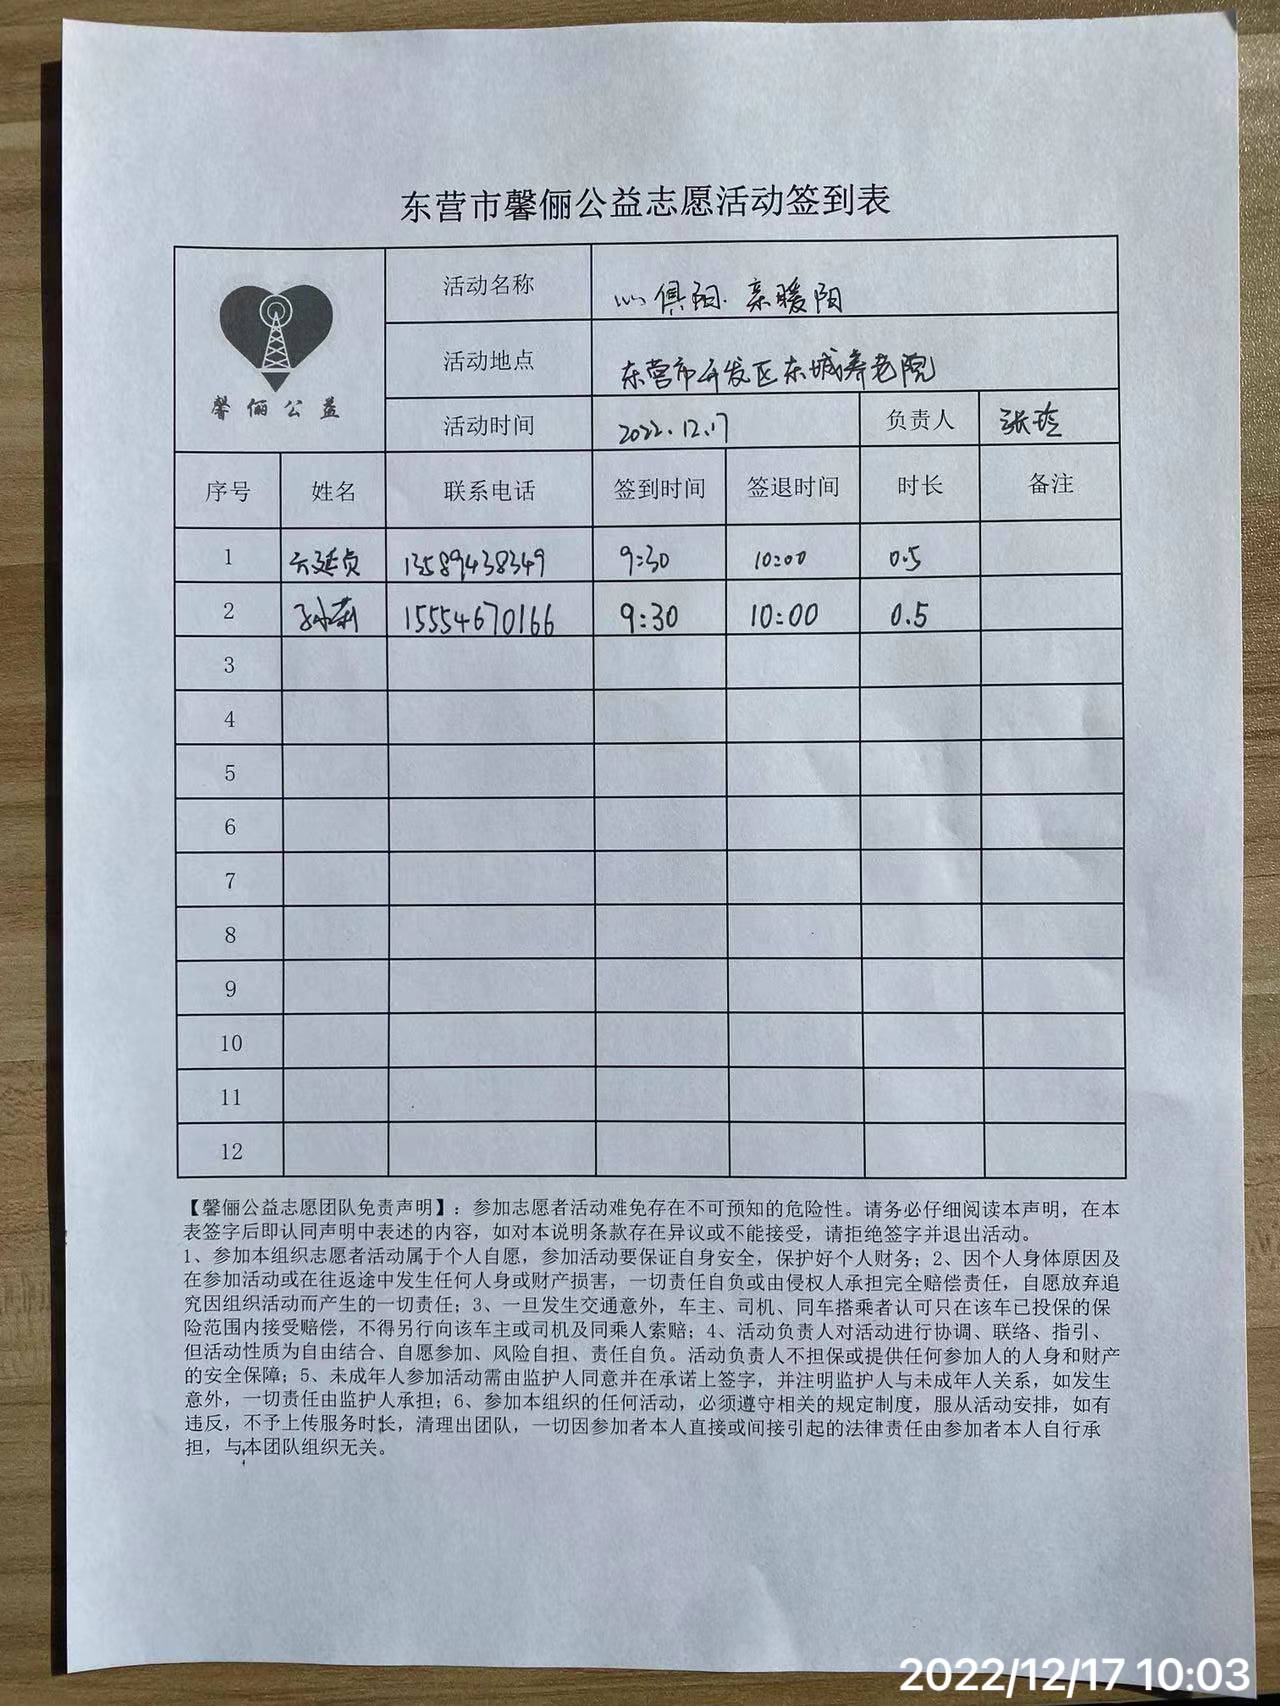 东营市馨俪公益志愿活动签到表
馨俪公益
活动名称 心俱阳·亲暖阳
活动地点 东营市开发区东城养老院
活动时间 2022.12.17 负责人 张玲
序号 姓名 联系电话 签到时间 签退时间 时长 备注
1 延贞 13589438349 9:30 10:00 0.5
2 孙莉 15554670166 9:30 10:00 0.5
3
4
5
6
7
8
9
10
11
12
【馨俪公益志愿团队免责声明】：参加志愿者活动难免存在不可预知的危险性。请务必仔细阅读本声明，在本
表签字后即认同声明中表述的内容，如对本说明条款存在异议或不能接受，请拒绝签字并退出活动。
1、参加本组织志愿者活动属于个人自愿，参加活动要保证自身安全，保护好个人财务；2、因个人身体原因及
在参加活动或在往返途中发生任何人身或财产损害，一切责任自负或由侵权人承担完全赔偿责任，自愿放弃追
究因组织活动而产生的一切责任；3、一旦发生交通意外，车主、司机、同车搭乘者认可只在该车已投保的保
险范围内接受赔偿，不得另行向该车主或司机及同乘人索赔；4、活动负责人对活动进行协调、联络、指引、
但活动性质为自由结合、自愿参加、风险自担、责任自负。活动负责人不担保或提供任何参加人的人身和财产
的安全保障；5、未成年人参加活动需由监护人同意并在承诺上签字，并注明监护人与未成年人关系，如发生
意外，一切责任由监护人承担；6、参加本组织的任何活动，必须遵守相关的规定制度，服从活动安排，如有
违反，不予上传服务时长，清理出团队，一切因参加者本人直接或间接引起的法律责任由参加者本人自行承
担，与本团队组织无关。
2022/12/17 10:03